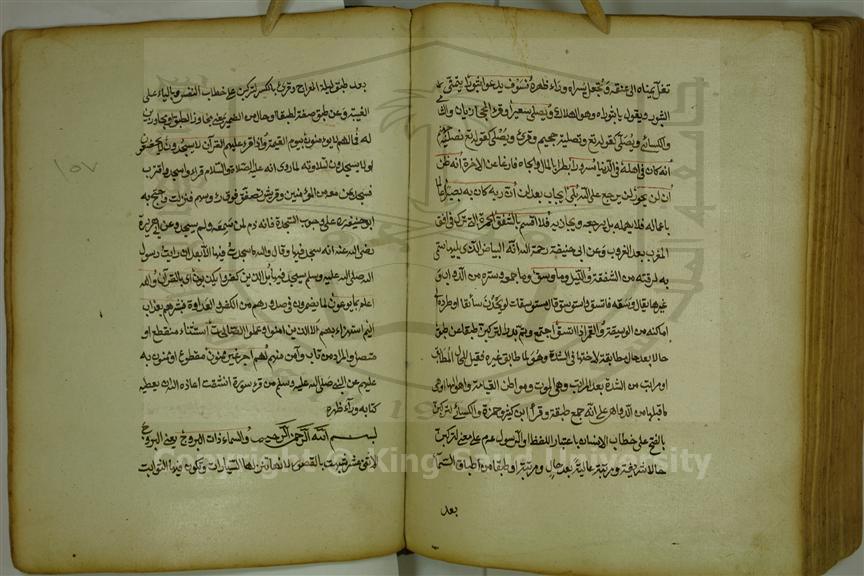 تغل يمناه الى عنقه وتجعل يسراه وراء ظهره فسوف يدعوا ثبورا يتمنى
الثبور ويقول يا ثبوراه وهو الهلاك ويصلى سعيرا وقرئ الحجازيان
والكسائي ويصلى كقوله تع وتصلية جحيم وقرئ ويصلى كقوله تع نصليهم
انه كان في اهله في الدنيا مسرورا بطرا بالمال والجاه فارغا عن الاخرة انه ظن
ان لن يحور لن يرجع على الله بلى ايجاب بعد لن ان ربه كان به بصيرا عالما
باعماله فلا يهمله بل يرجعه ويجازيه فلا اقسم بالشفق الحمرة التي ترى في افق
المغرب بعد الغروب وعن ابى حنيفة رحمة الله انه البياض الذي يليها سمى
به لرقته من الشفقة والليل وما وسق وما جمعه وستره من الدواب و
غيرها يقال وسقه فاتسق واستوسق قال مستوسقات لو يجدن سائقا او طرده الى
اماكنه من الوسيقة والقمر اذا اتسق اجتمع وتم بدرا لتركبن طبقا عن طبق
حالا بعد حال مطابقة لاختها في الشدة وهو لما طابق غيره فقيل للحال المطابقة
او مراتب من الشدة بعد المراتب وهي الموت ومواطن القيامة واهوالها او هي
لما قبلها من الدواهي على انه جمع طبقة وقرأ ابن كثير وحمزة والكسائي لتركبن
بالفتح على خطاب الانسان باعتبار اللفظ او الرسول عم على معنى لتركبن
حالا شريفة ومرتبة عالية بعد حال ومرتبة او طبقا من اطباق السماء
بعد
بعد طبق ليلة المعراج وقرئ بالكسر لتركبن على خطاب النفس وبالياء على
الغيبة وعن طبق صفة لطبقا او حال من الضمير بمعنى مجاوز الطبق او مجاوزين
له فما لهم لا يؤمنون بيوم القيمة واذا قرئ عليهم القرآن لا يسجدون لا يخضعون
او لا يسجدون لتلاوته لما روى انه عليه الصلاة والسلام قرأ واسجد واقترب
فسجد بمن معه من المؤمنين وقريش تصفق فوق رؤسهم فنزلت واحتج به
ابو حنيفة على وجوب السجدة فانه ذم لمن سمعه ولم يسجد وعن ابي هريرة
رضى الله عنه انه سجد فيها وقال والله ما سجدت فيها الا بعد ان رأيت رسول
الله صلى الله عليه وسلم يسجد فيها بل الذين كفروا يكذبون اى بالقرآن والله
اعلم بما يوعون لما يضمرون في صدورهم من الكفر والعداوة فبشرهم بعذاب
اليم استهزاء بهم الا الذين امنوا وعملوا الصالحات استثناء منقطع او
متصل والمراد من تاب وآمن منهم لهم اجر غير ممنون مقطوع او ممنون به
عليهم عن النبى صلى الله عليه وسلم من قرء سورة انشقت اعاذه الله ان يعطيه
كتابه وراء ظهره
بسم الله الرحمن الرحيم والسماء ذات البروج يعني البروج
الاثنى عشر شبهت بالقصور لانها تنزلها السيارات وتكون فيها الثوابت
١٥٧
Copyright © King Saud University
1957